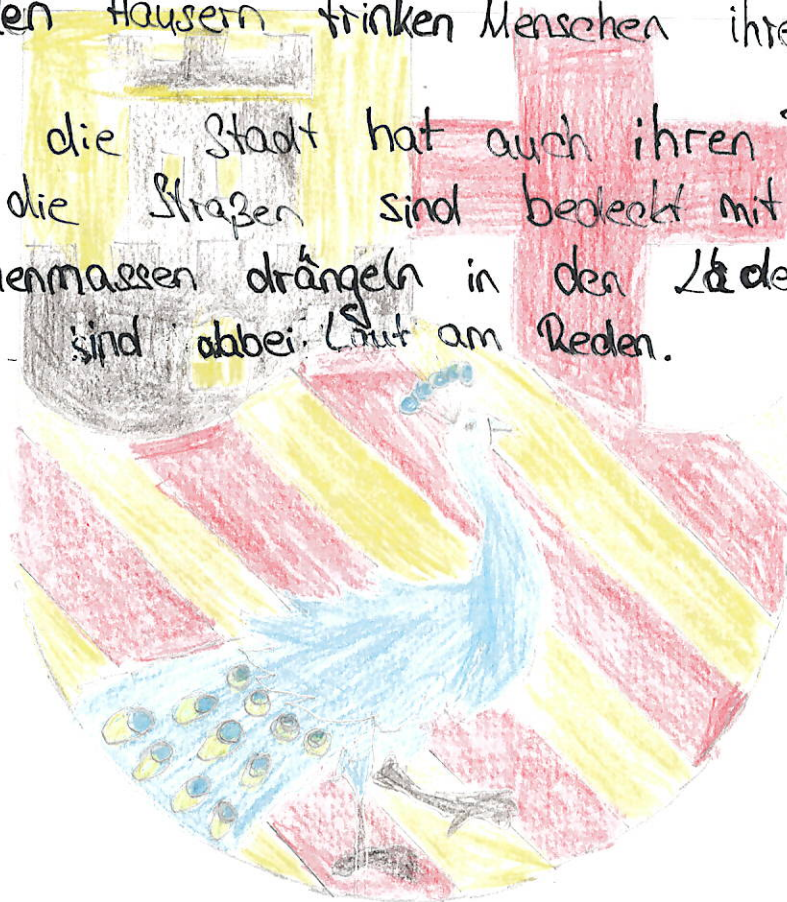 len Häusern trinken Menschen ihre
die Stadt hat auch ihren
die Straßen sind bedeckt mit
enmassen drängeln in den Läde
sind dabei Laut am Reden.